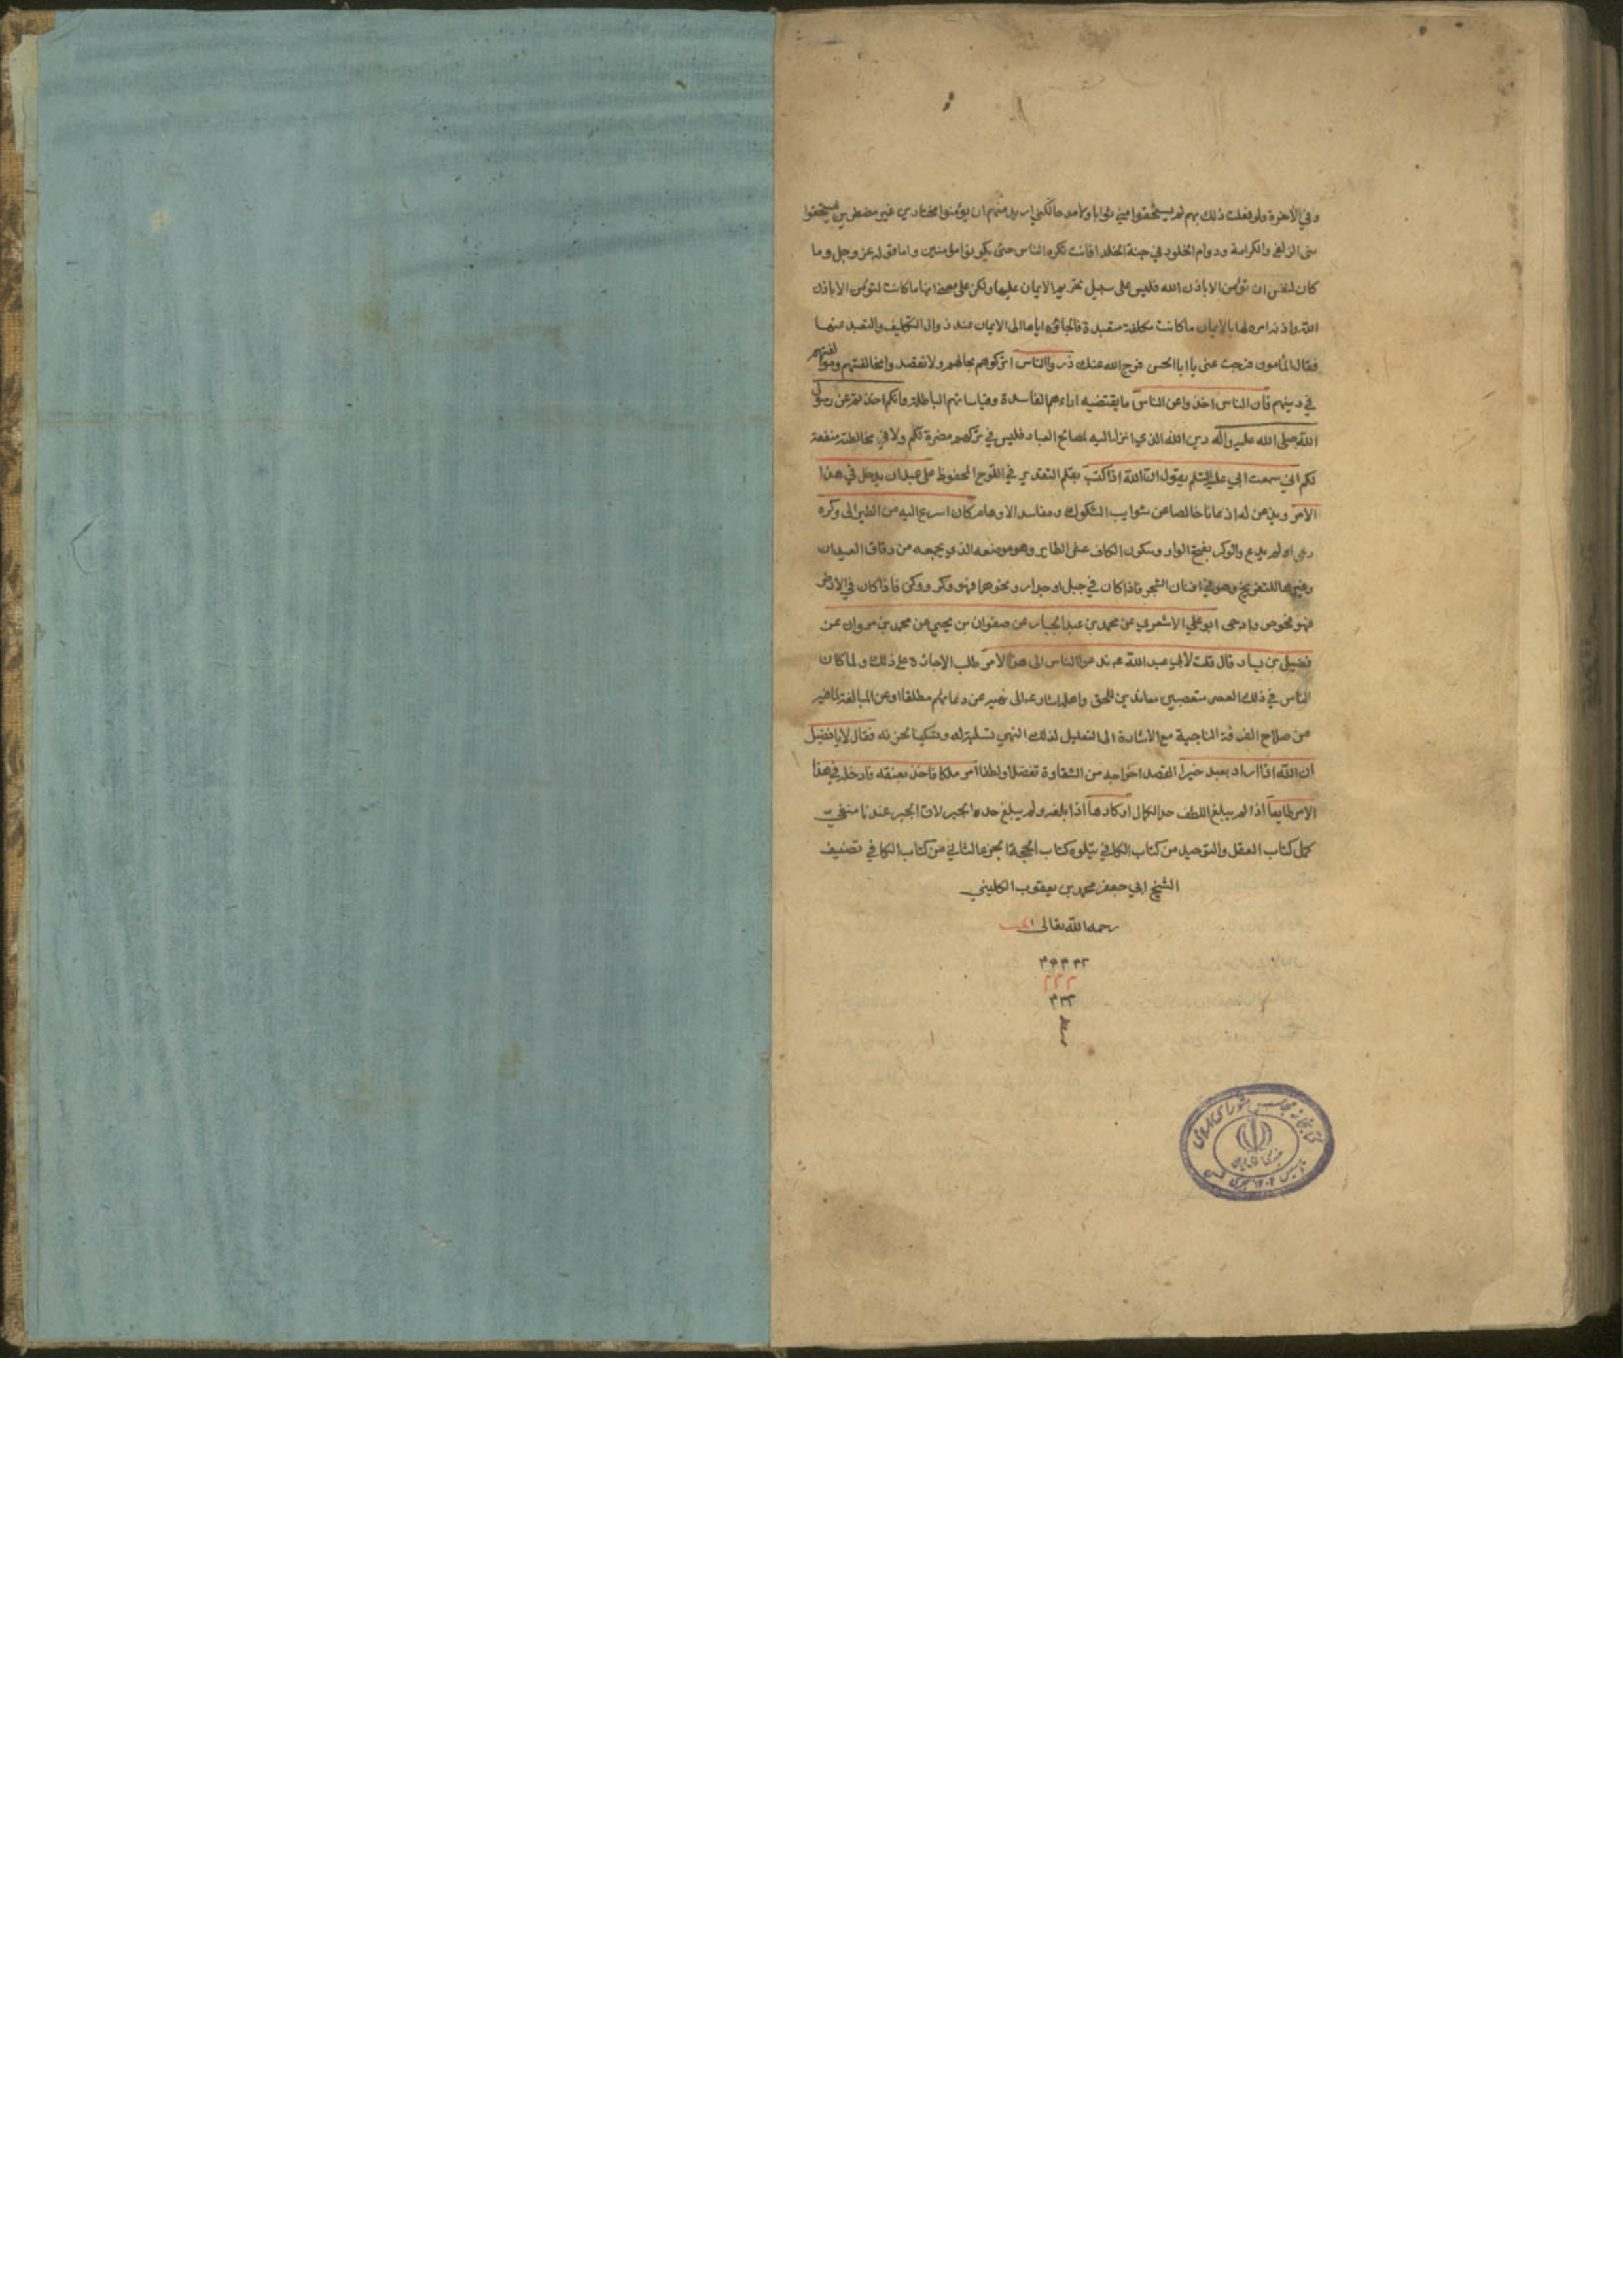 وفي الآخرة ولو فعلت ذلك بهم لم يستحقوا مني ثوابا ولا مدحا لكني اريد منهم ان يؤمنوا مختارين غير مضطرين ليستحقوا
مني الزلفى والكرامة ودوام الخلود في جنة الخلد افانت تكره الناس حتى يكونوا مؤمنين واما قوله عز وجل وما
كان لنفس ان تؤمن الا باذن الله فليس على سبيل تحريم الايمان عليها ولكن على معنى انها ما كانت لتؤمن الا باذن
الله واذنه امره لها بالايمان ما كانت مكلفة متعبدة والجاؤه اياها الى الايمان عند زوال التكليف والتعبد عنها
فقال المأمون فرجت عني يا ابا الحسن فرج الله عنك ذروا الناس اتركوهم بحالهم ولا تقصدوا مخالفتهم وموالفتهم
في دينهم فان الناس اخذوا عن الناس ما يقتضيه اراءهم الفاسدة وقياساتهم الباطلة وانكم اخذتم عن رسول
الله صلى الله عليه وآله دين الله الذي انزل اليه لمصالح العباد فليس في تركهم مضرة لكم ولا في مخالطتهم منفعة
لكم اني سمعت ابي عليه السلم يقول ان الله اذا كتب بقلم التقدير في اللوح المحفوظ على عبد ان يدخل في هذا
الامر ويذعن له اذعانا خالصا عن شوايب الشكوك ومفاسد الاوهام كان اسرع اليه من الطير الى وكره
دعي او لم يدع والوكر بفتح الواو وسكون الكاف عش الطاير وهو موضعه الذي يجمعه من دقاق العيدان
وغيرها للتفريخ وهو في افنان الشجر فاذا كان في جبل او جدار ونحوهما فهو وكر ووكن فاذا كان في الارض
فهو افحوص وادحى ابو علي الاشعري عن محمد بن عبد الجبار عن صفوان بن يحيى عن محمد بن مروان عن
فضيل بن يسار قال قلت لأبي عبد الله ع م ندعوا الناس الى هذا الامر طلب الاجازة على ذلك ولما كان
الناس في ذلك العصر متعصبين معاندين للحق واهله
من صلاح الفرقة الناجية مع الاشارة الى التعليل لذلك النهي تسلية له وتسكينا لحزنه فقال لا يا فضيل
ان الله اذا اراد بعبد خيرا لقصد اخراجه من الشقاوة تفضلا ولطفا امر ملكا فاخذ بعنقه فادخله في هذا
الامر طايعا اذا لم يبلغ اللطف حد الكمال او كارها اذا بلغه ولم يبلغ حد الجبر لان الجبر عندنا منفي
كمل كتاب العقل والتوحيد من كتاب الكافي يتلوه كتاب الحجة الجزء الثاني من كتاب الكافي تصنيف
الشيخ ابي جعفر محمد بن يعقوب الكليني
رحمه الله تعالى
كتابخانه مجلس شورای اسلامی